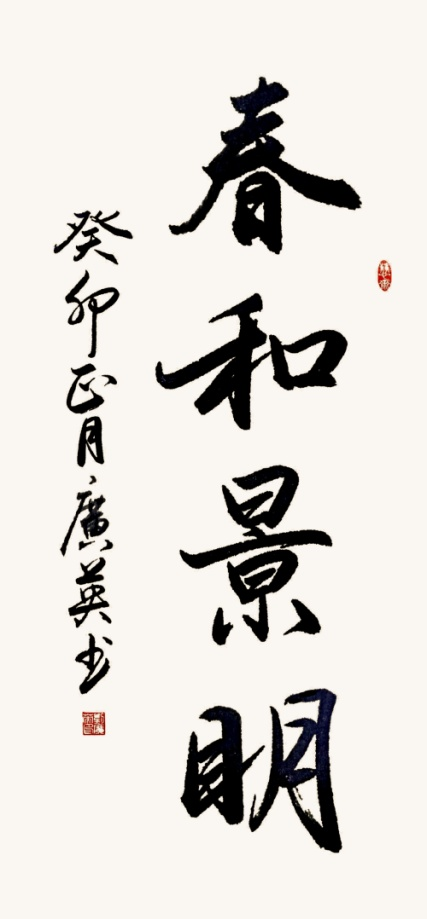 春和景明
癸卯正月廣英书